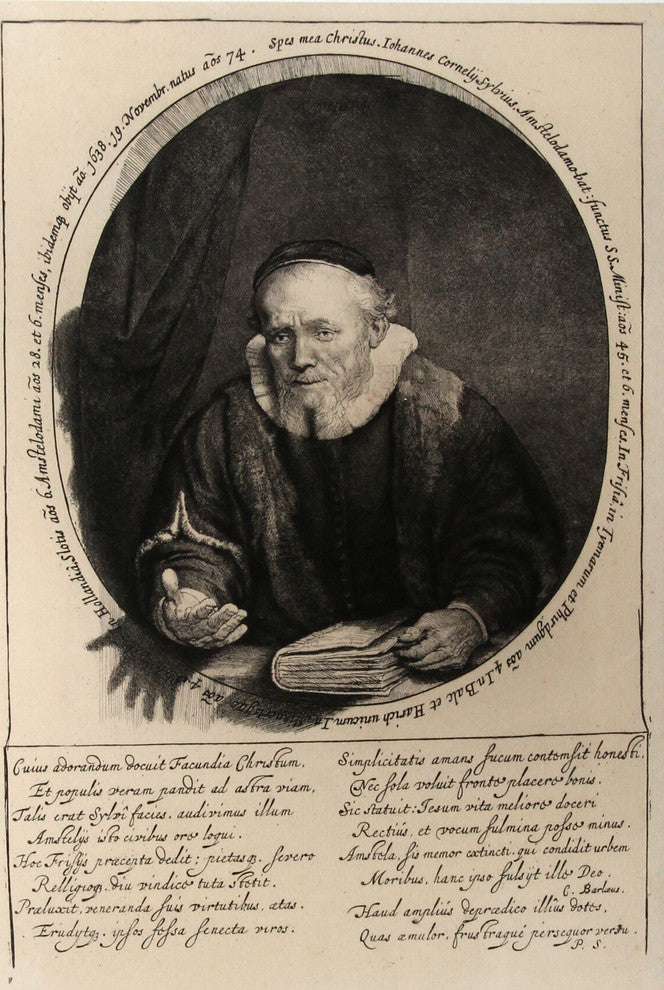 Spes mea Christus. Iohannes Cornelij Sylvius, Amstelodamo-bat: functus S S. Minist: aõs 45. et 6. menses. In Frisia, in Tyemarum et Phirdgum aõs 4. In Balc et Harich unicum. In Minnertsga aõs 4. In Hollandia, Slotis aõs 6. Amstelodami aõs 28. et 6. menses, ibidemq₃ obijt aõ. 1638. 19. Novembr. natus aõs 74.
Cuius adorandum docuit Facundia Christum,
Et populis veram pandit ad astra viam,
Talis erat Sylvî facies. audivimus illum
Amstelijs isto civibus ore loqui.
Hoc Frisijs præcepta dedit; pietasq₃. severo
Relligioq₃. diu vindice tuta stetit.
Præluxit, veneranda suis virtutibus, ætas.
Erudytq₃ ipsos fessa senecta viros.
Simplicitatis amans fucum contemsit honesti,
Nec sola voluit fronte placere bonis.
Sic statuit: Iesum vita meliore doceri
Rectiùs, et vocum fulmina posse minus.
Amstela, sis memor extincti. qui condidit urbem
Moribus, hanc ipso fulsijt ille Deo.
C. Barlæus.
Haud ampliùs deprædico illius dotes,
Quas æmulor, frustraque persequor versu.
P. S.